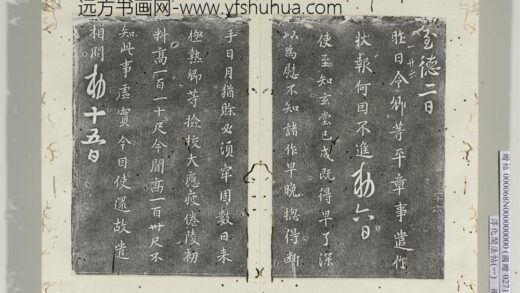 远方书画网-www.yfshuhua.com
德二日
昨日令卿等平章事遣作
狀報何因不進敕六日
使至知玄堂已成既得早了深
以為慰不知諸作早晚揔得斷
手日月猶賒必須牢固數日來
極熱卿等撿校大應疲倦陵初
料高一百一十尺今聞高一百卅尺不
知此事虛實今因使還故遣
相問敕十五日
贈帖 000068N000000000 (國贈 0271
淳化閣法帖(一)